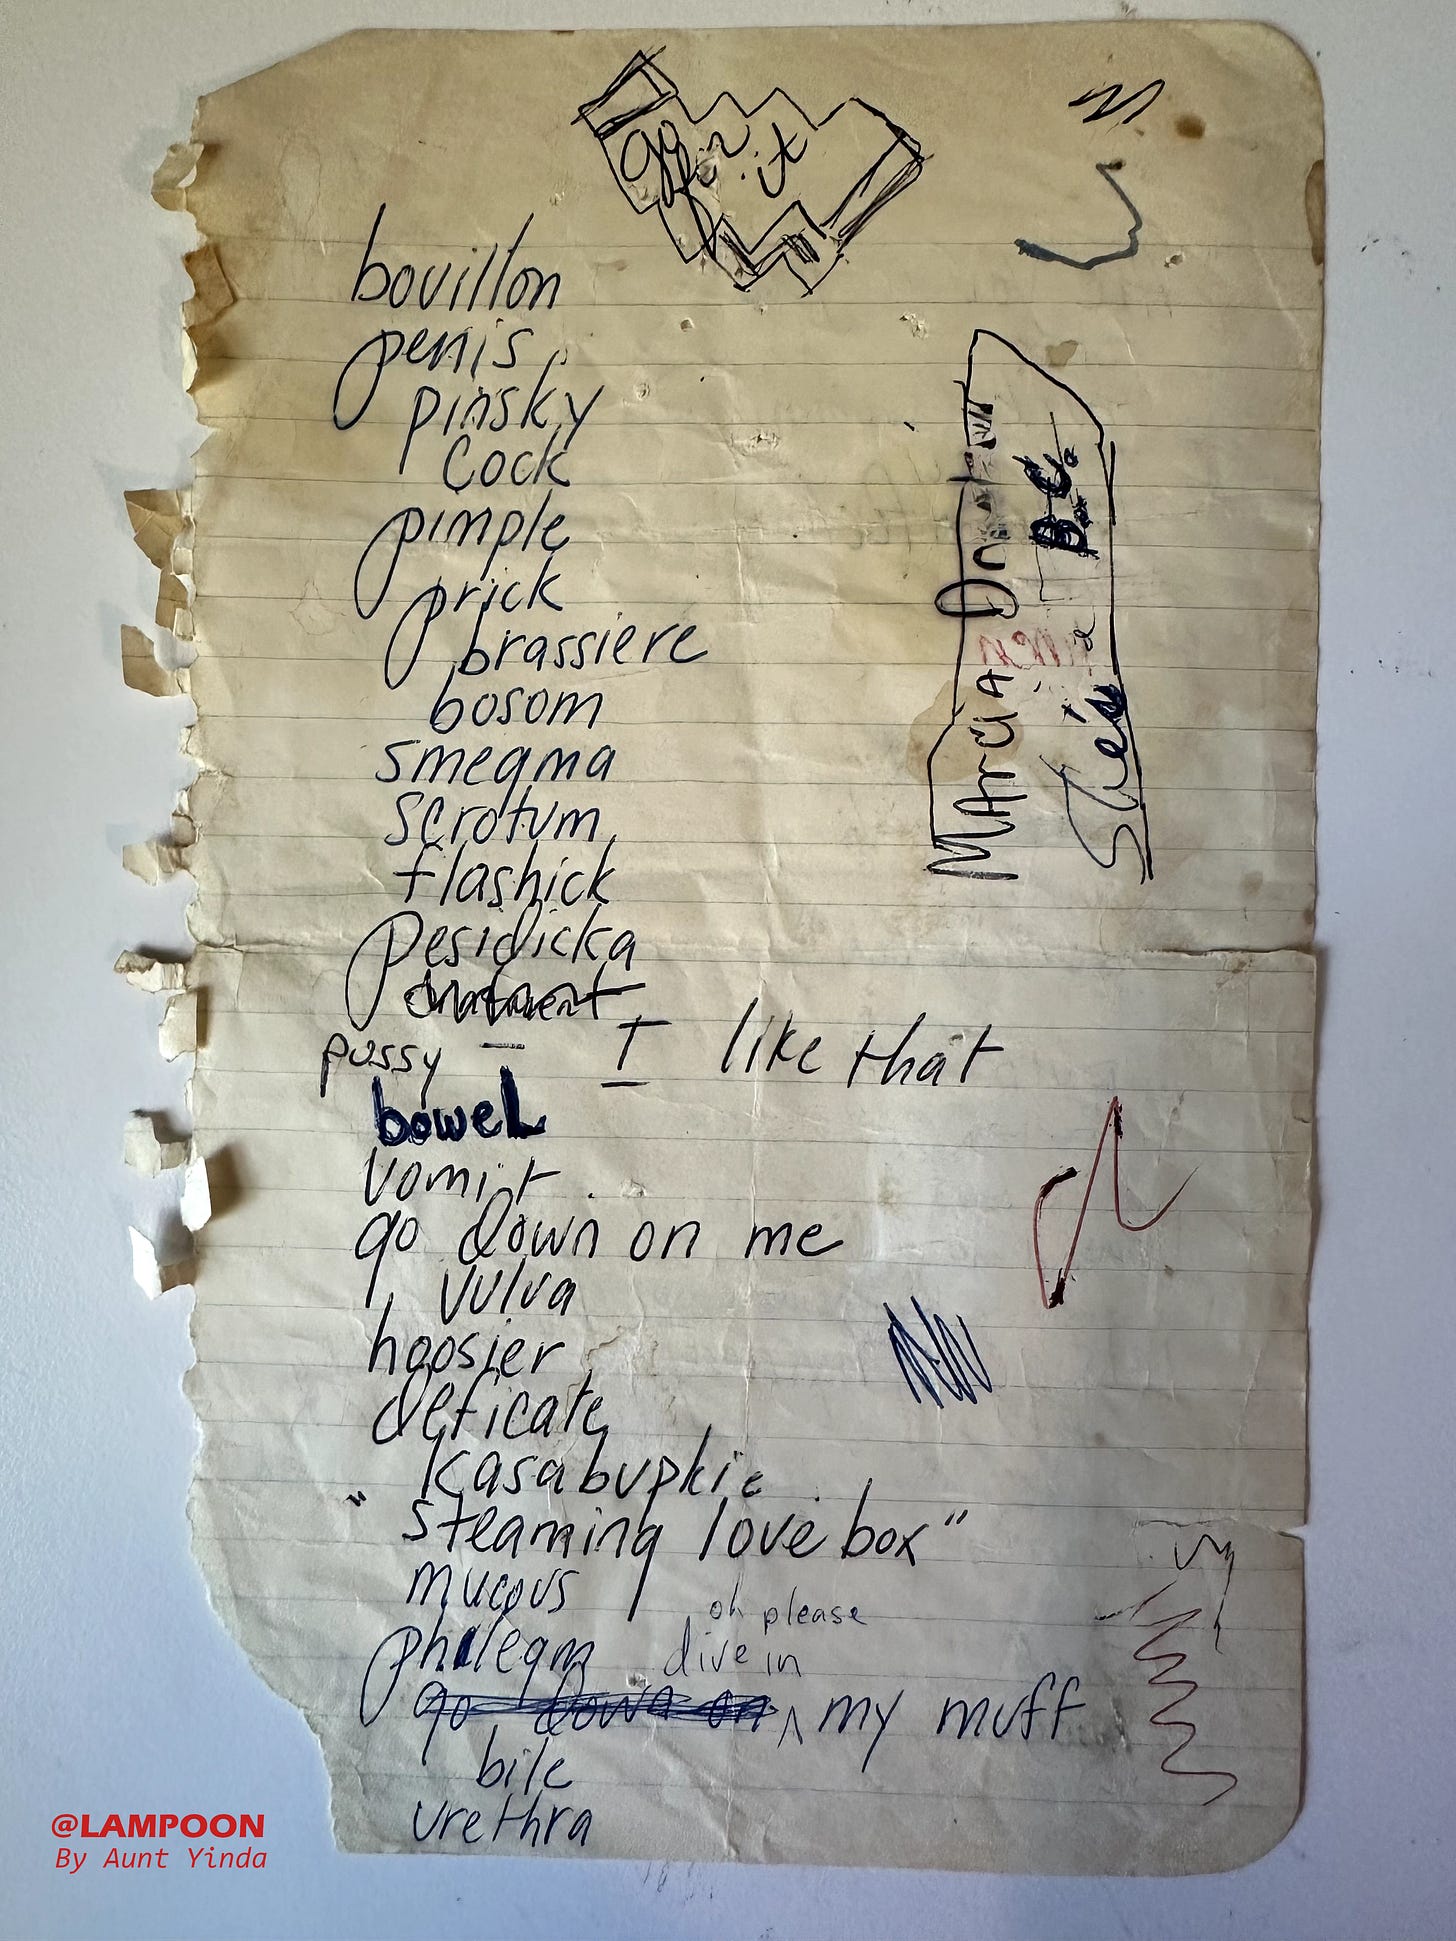 go for it
bouillon
penis
pinsky
Cock
pimple
prick
brassiere
bosom
smegma
scrotum
flashick
pesidicka
pussy - I like that
boweL
vomit
go down on me
vulva
hoosier
deficate
Kasabupkie
"steaming love box"
mucous
phlegm
oh please
dive in
go down on ^ my muff
bile
urethra
MArciA
She's a B.C.
@LAMPOON
By Aunt Yinda